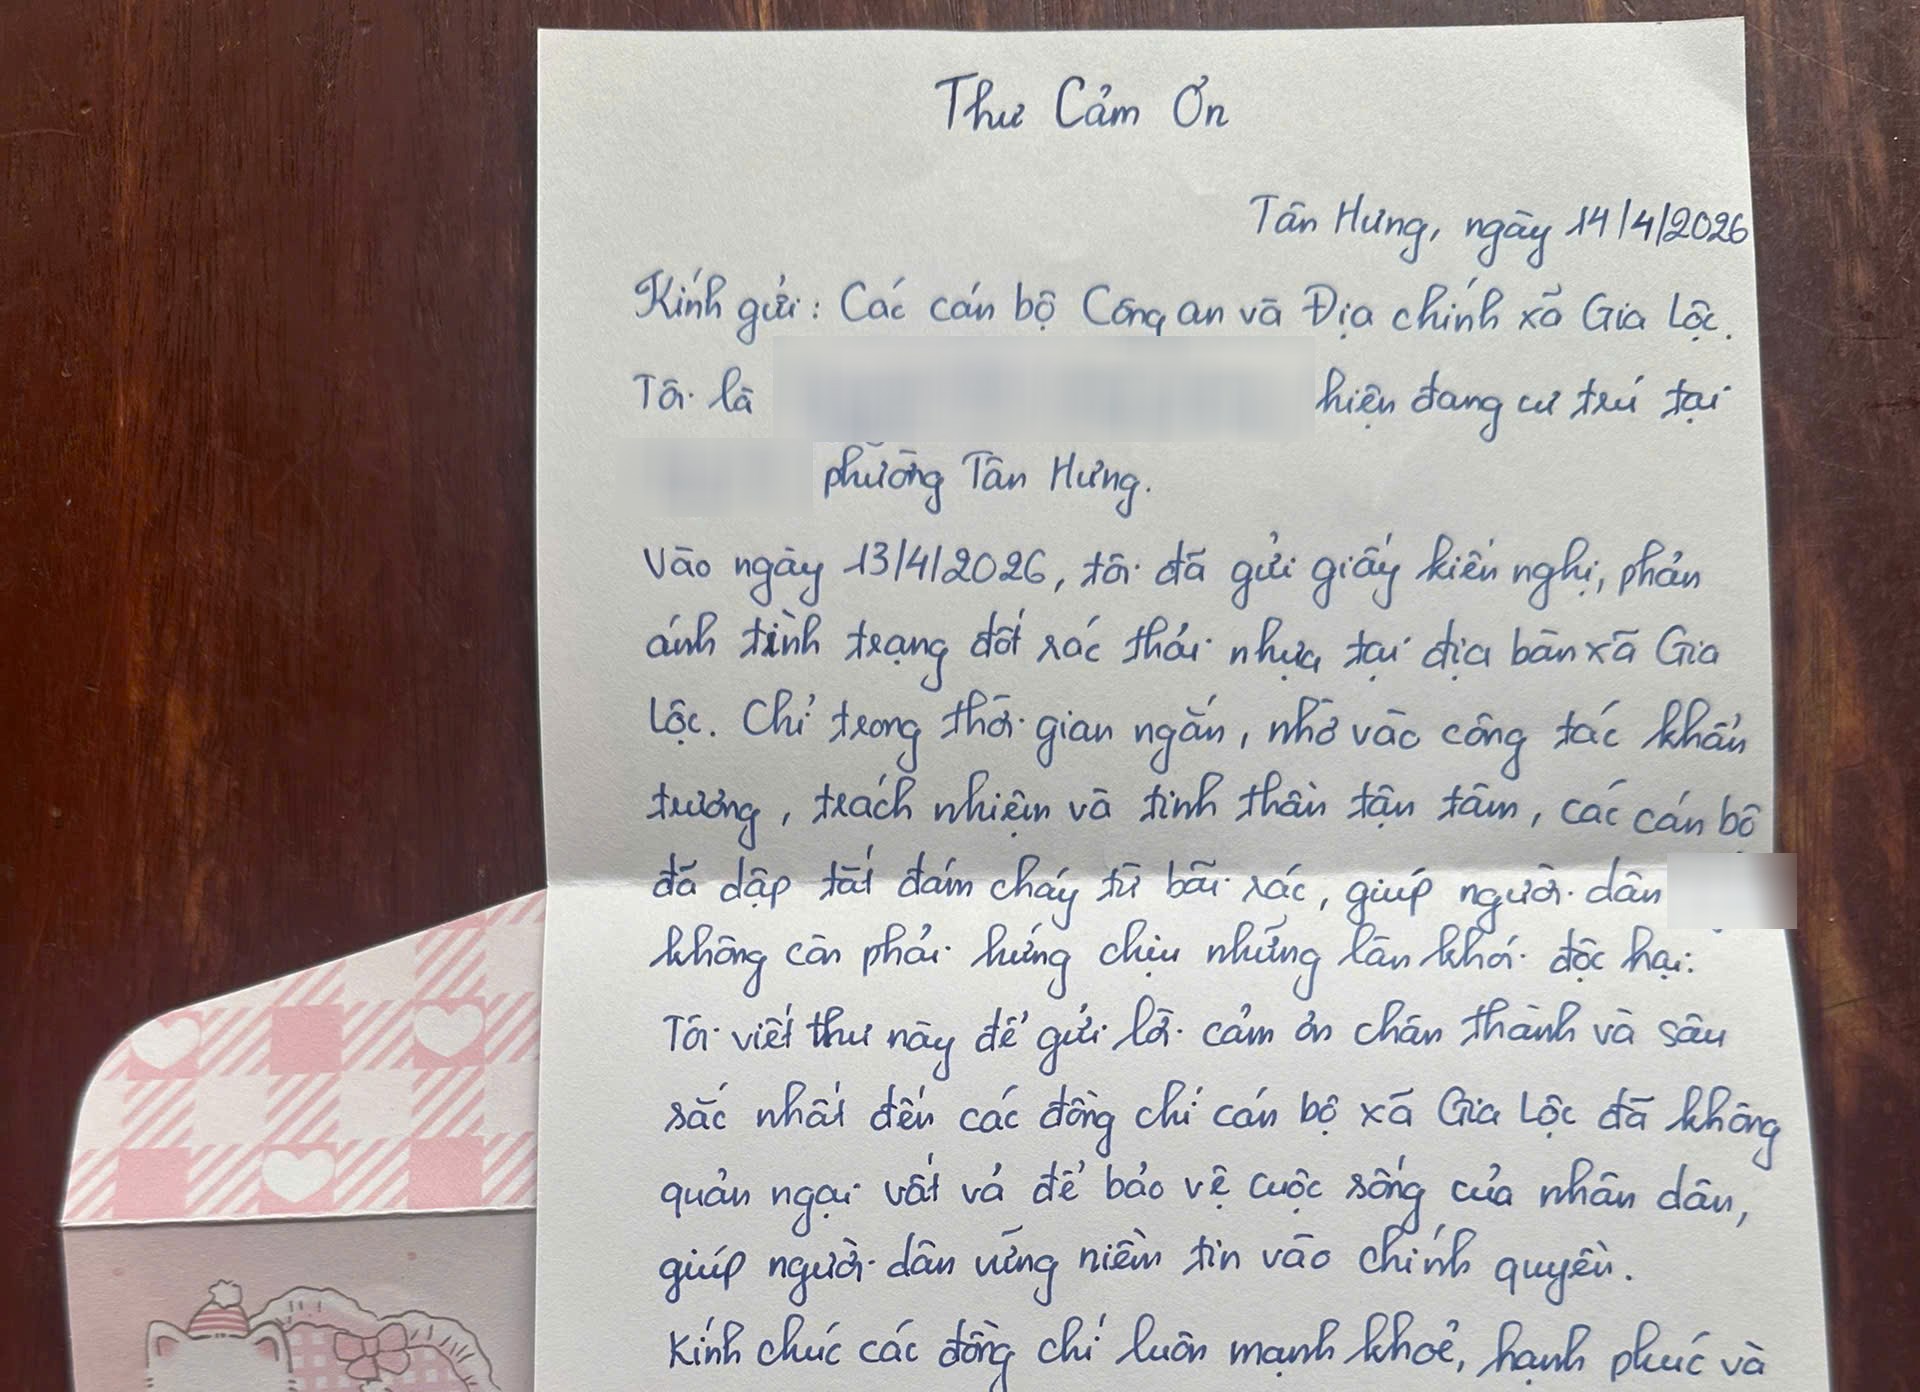 Thư Cảm Ơn
Tân Hưng, ngày 14/4/2026
Kính gửi: Các cán bộ Công an và Địa chính xã Gia Lộc.
Tôi là hiện đang cư trú tại
phường Tân Hưng.
Vào ngày 13/4/2026, tôi đã gửi giấy kiến nghị, phản
ánh tình trạng đốt rác thải nhựa tại địa bàn xã Gia
Lộc. Chỉ trong thời gian ngắn, nhờ vào công tác khẩn
trương, trách nhiệm và tinh thần tận tâm, các cán bộ
đã dập tắt đám cháy từ bãi rác, giúp người dân
không cần phải hứng chịu những làn khói độc hại.
Tôi viết thư này để gửi lời cảm ơn chân thành và sâu
sắc nhất đến các đồng chí cán bộ xã Gia Lộc đã không
quản ngại vất vả để bảo vệ cuộc sống của nhân dân,
giúp người dân vững niềm tin vào chính quyền.
Kính chúc các đồng chí luôn mạnh khoẻ, hạnh phúc và